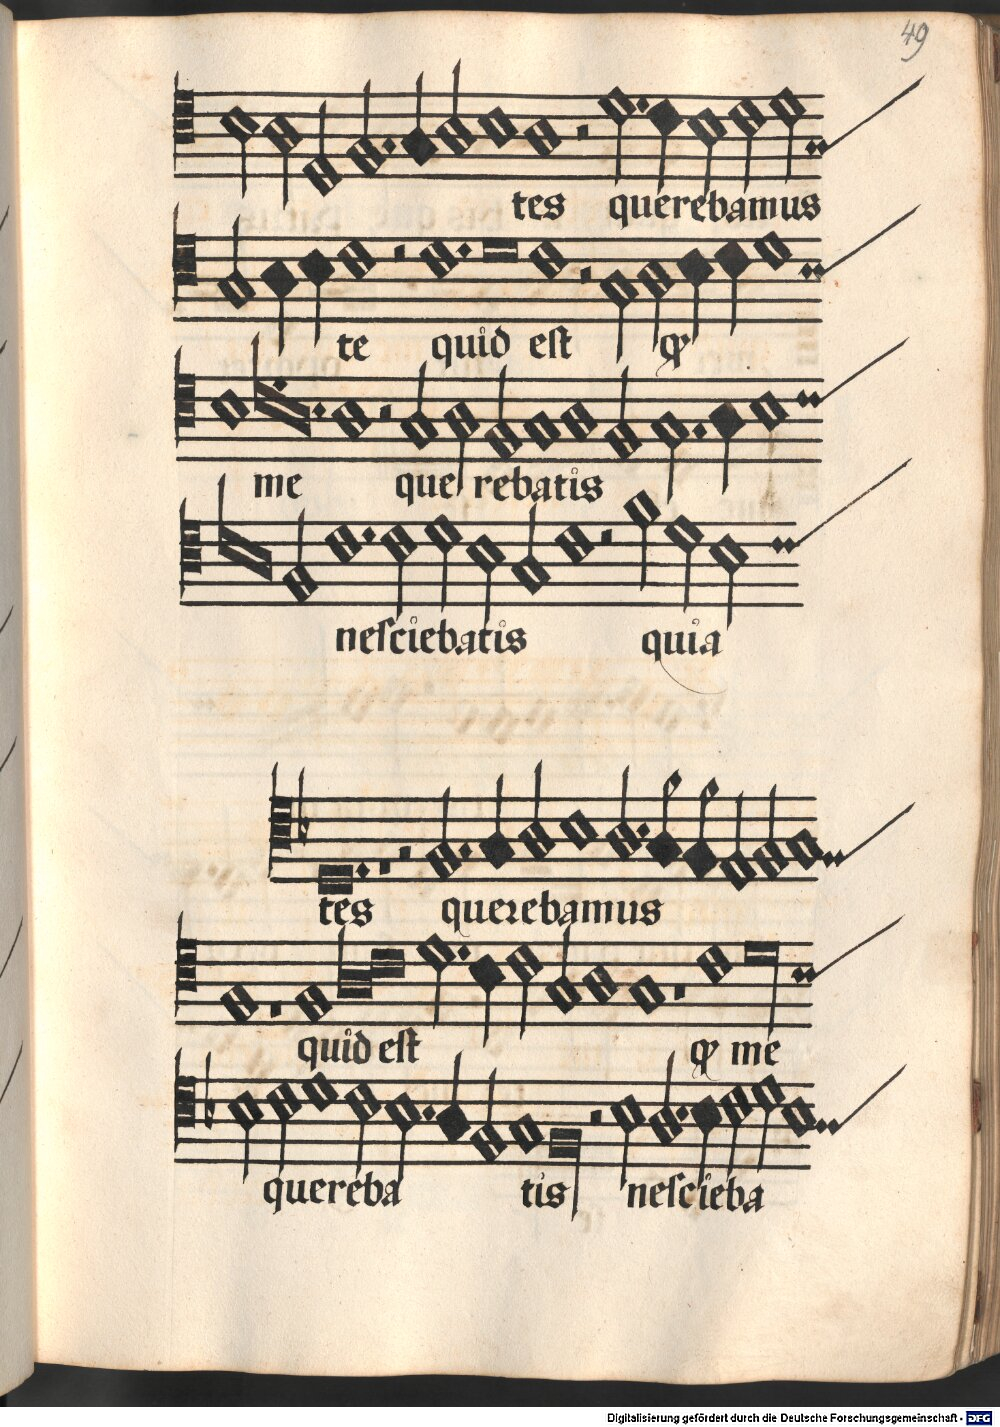 49
tes querebamus
te quid est ꝙ
me que rebatis
nesciebatis quia
tes querebamus
quid est ꝙ me
quereba tis nescieba
Digitalisierung gefördert durch die Deutsche Forschungsgemeinschaft - DFG